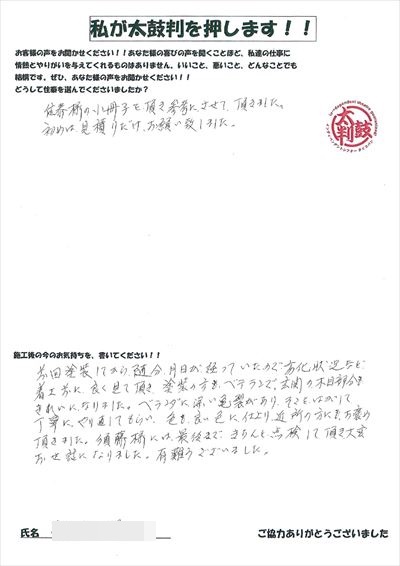 私が太鼓判を押します！！
お客様の声をお聞かせください！！あなた様の喜びの声を聞くことほど、私達の仕事に
情熱とやりがいを与えてくれるものはありません。いいこと、悪いこと、どんなことでも
結構です。ぜひ、あなた様の声をお聞かせください！！
どうして佳塗を選んでくださいましたか？
佳塗様の小冊子を頂き参考にさせて頂きました。
初めは見積りだけ、お願い致しました。
太鼓判
施工後の今のお気持ちを、書いてください！！
前回塗装してから随分、月日が経っていたので劣化状況など
着工前に良く見て頂き塗装の方も、ベテランで玄関の木目部分も
きれいになりました。ベランダに深い亀裂があり、そこを、はがして
丁寧に、やり直してもらい、色も、良い色に、仕上り、近所の方にも、お褒め
頂きました。須藤様には、最後まで、きちんと、点検して頂き大変
お世話になりました。有難うございました。
氏名
ご協力ありがとうございました